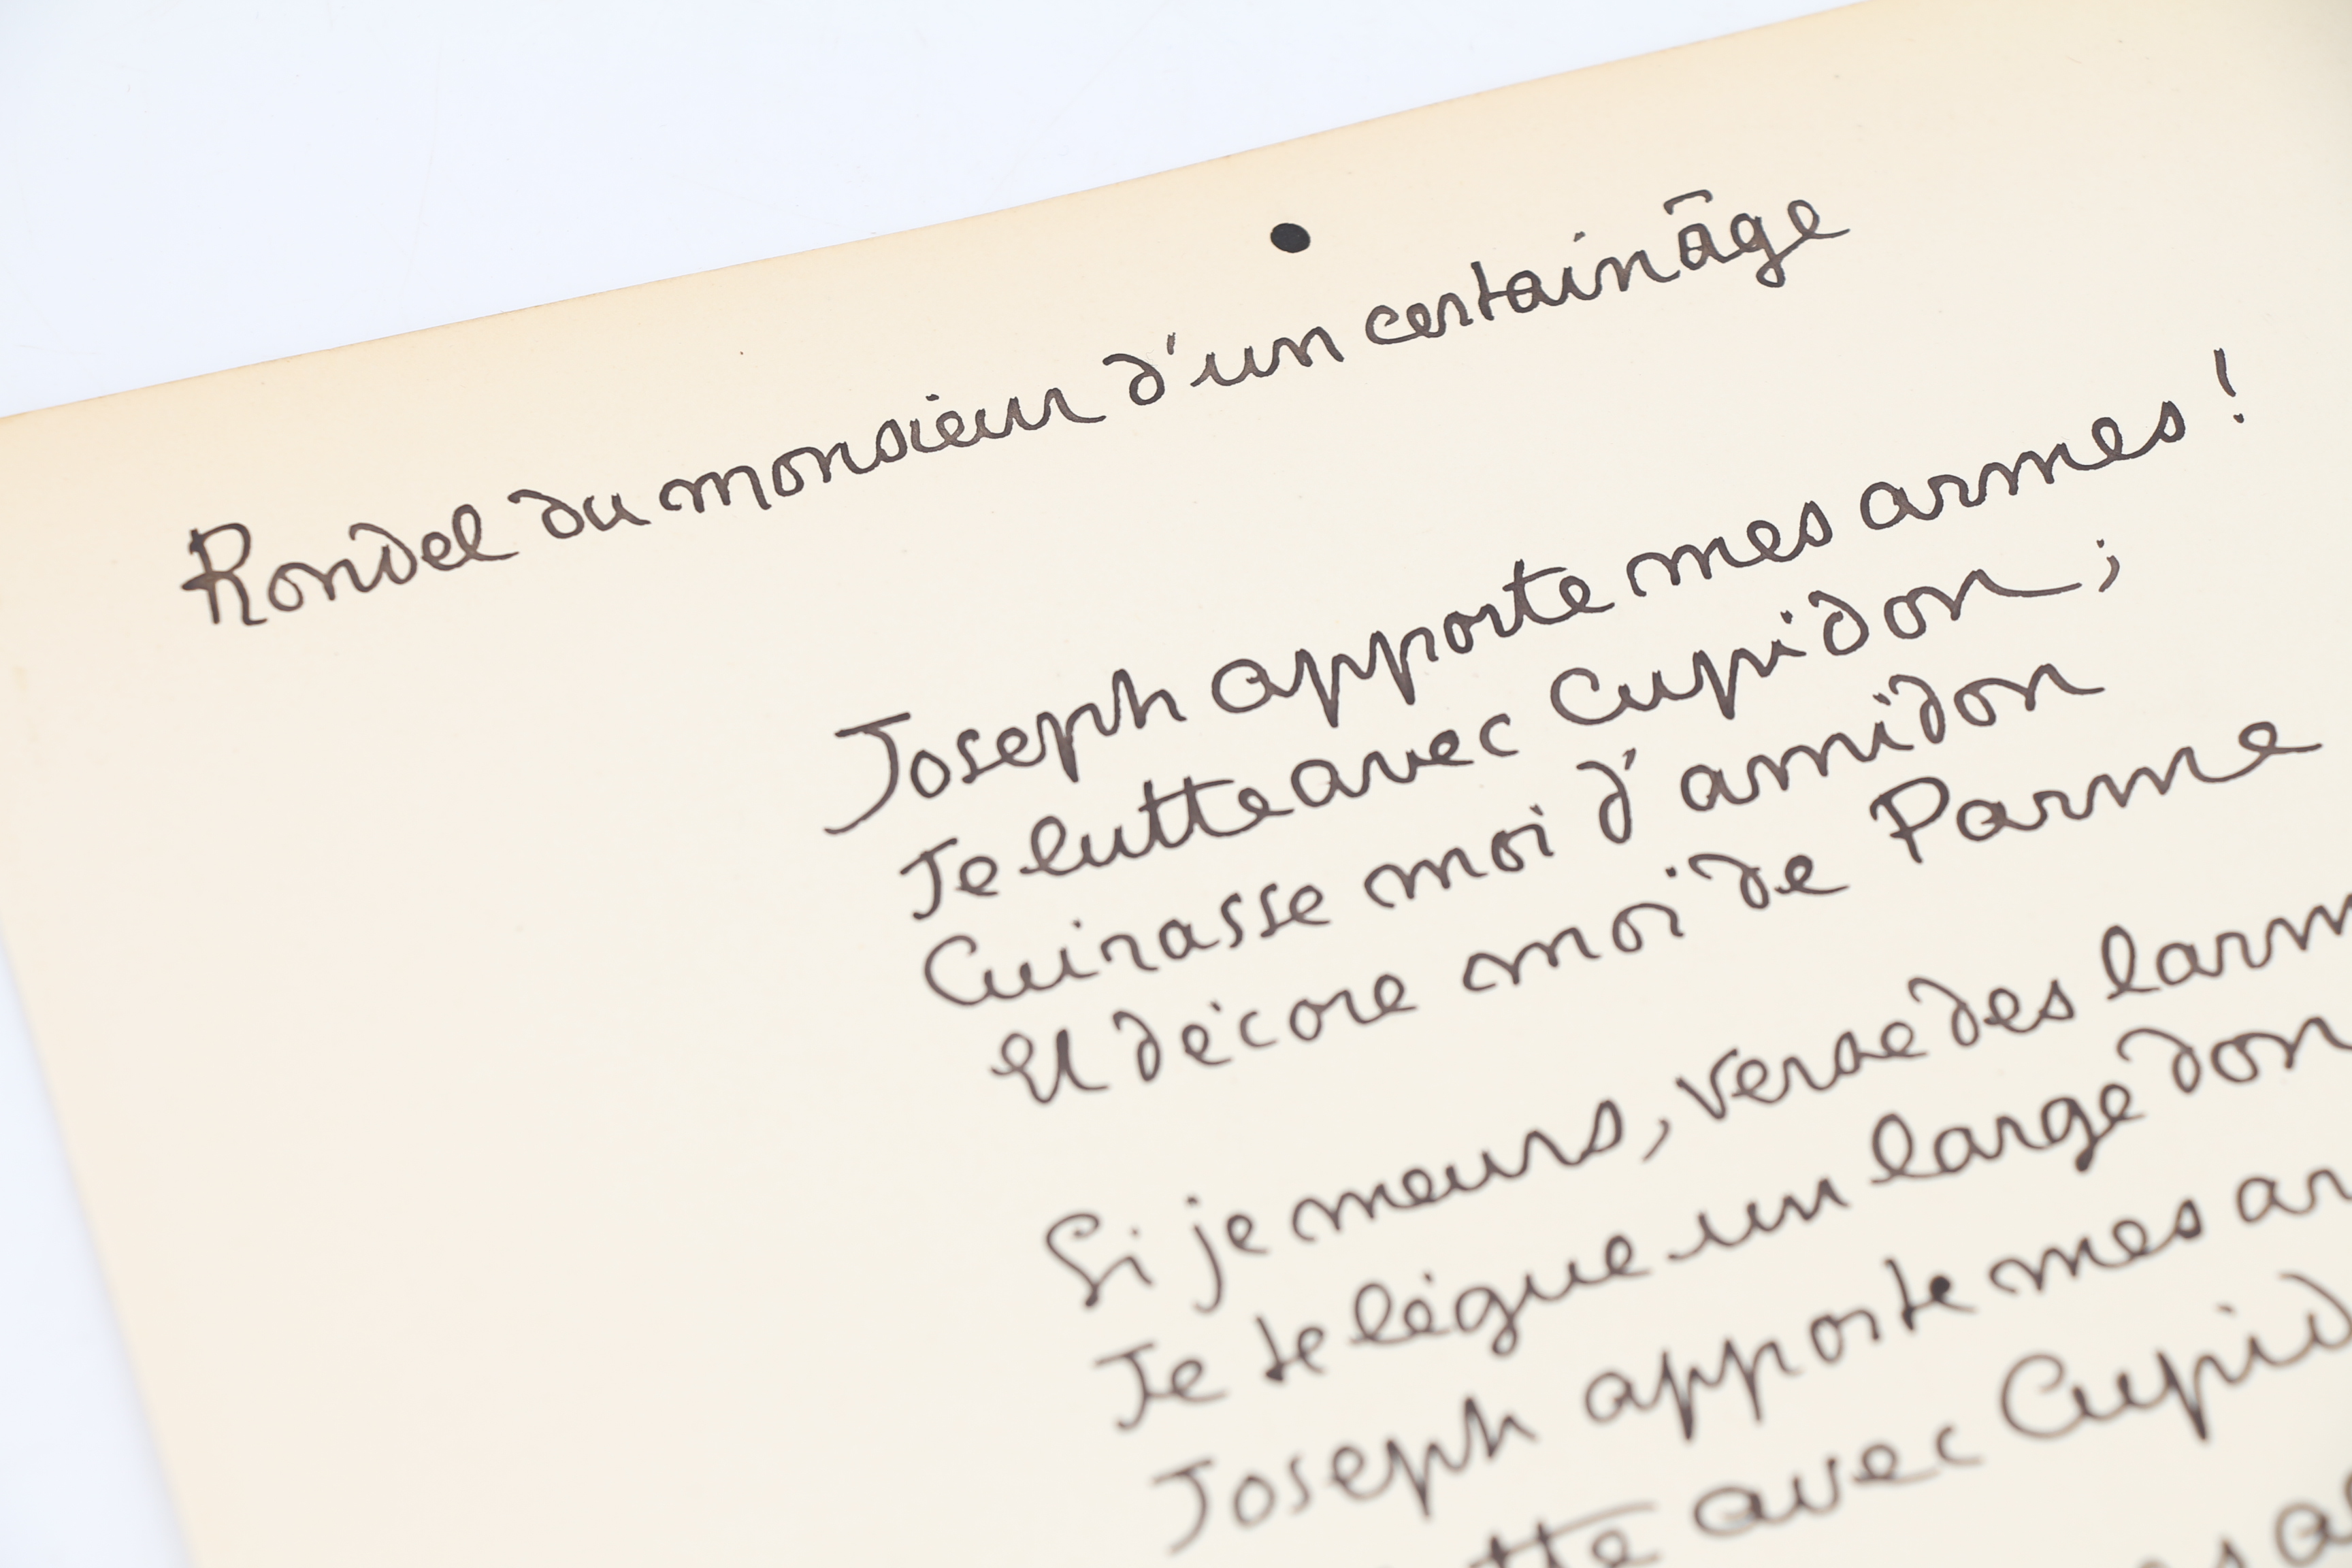 Rondel du monsieur d'un certain âge
Joseph apporte mes armes !
Je lutte avec Cupidon ;
Cuirasse moi d'amidon
Et décore moi de Parme
Si je meurs, verse des larm
Je te légue un large don
Joseph apporte mes ar
avec Cupid